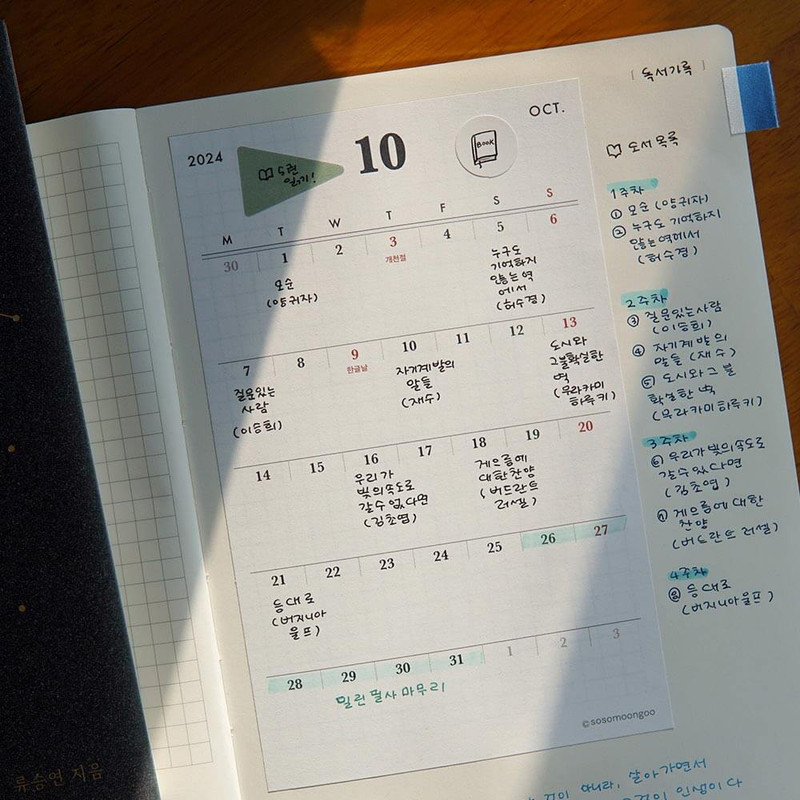 독서기록
2024
5권
읽기!
10
BOOK
OCT.
M T W T F S S
30 1 2 3 4 5 6
개천절
모순
(양귀자)
누구도
기억하지
않는 역
에서
(허수경)
7 8 9 10 11 12 13
한글날
질문있는
사람
(이승희)
자기계발의
말들
(재수)
도시와
그불확실한
벽
(무라카미
하루키)
14 15 16 17 18 19 20
우리가
빛의속도로
갈수없다면
(김초엽)
게으름에
대한찬양
(버드란트
러셀)
21 22 23 24 25 26 27
등대로
(버지니아
울프)
28 29 30 31 1 2 3
밀린 필사 마무리
©sosomoongoo
도서목록
1주차
① 모순 (양귀자)
② 누구도 기억하지
않는역에서
(허수경)
2주차
③ 질문있는사람
(이승희)
④ 자기계발의
말들 (재수)
⑤ 도시와 그 불
확실한 벽
(무라카미하루키)
3주차
⑥ 우리가빛의속도로
갈수없다면
(김초엽)
⑦ 게으름에 대한
찬양
(버드란트 러셀)
4주차
⑧ 등대로
(버지니아울프)
류승연 지음
아니라, 살아가면서
인생이다